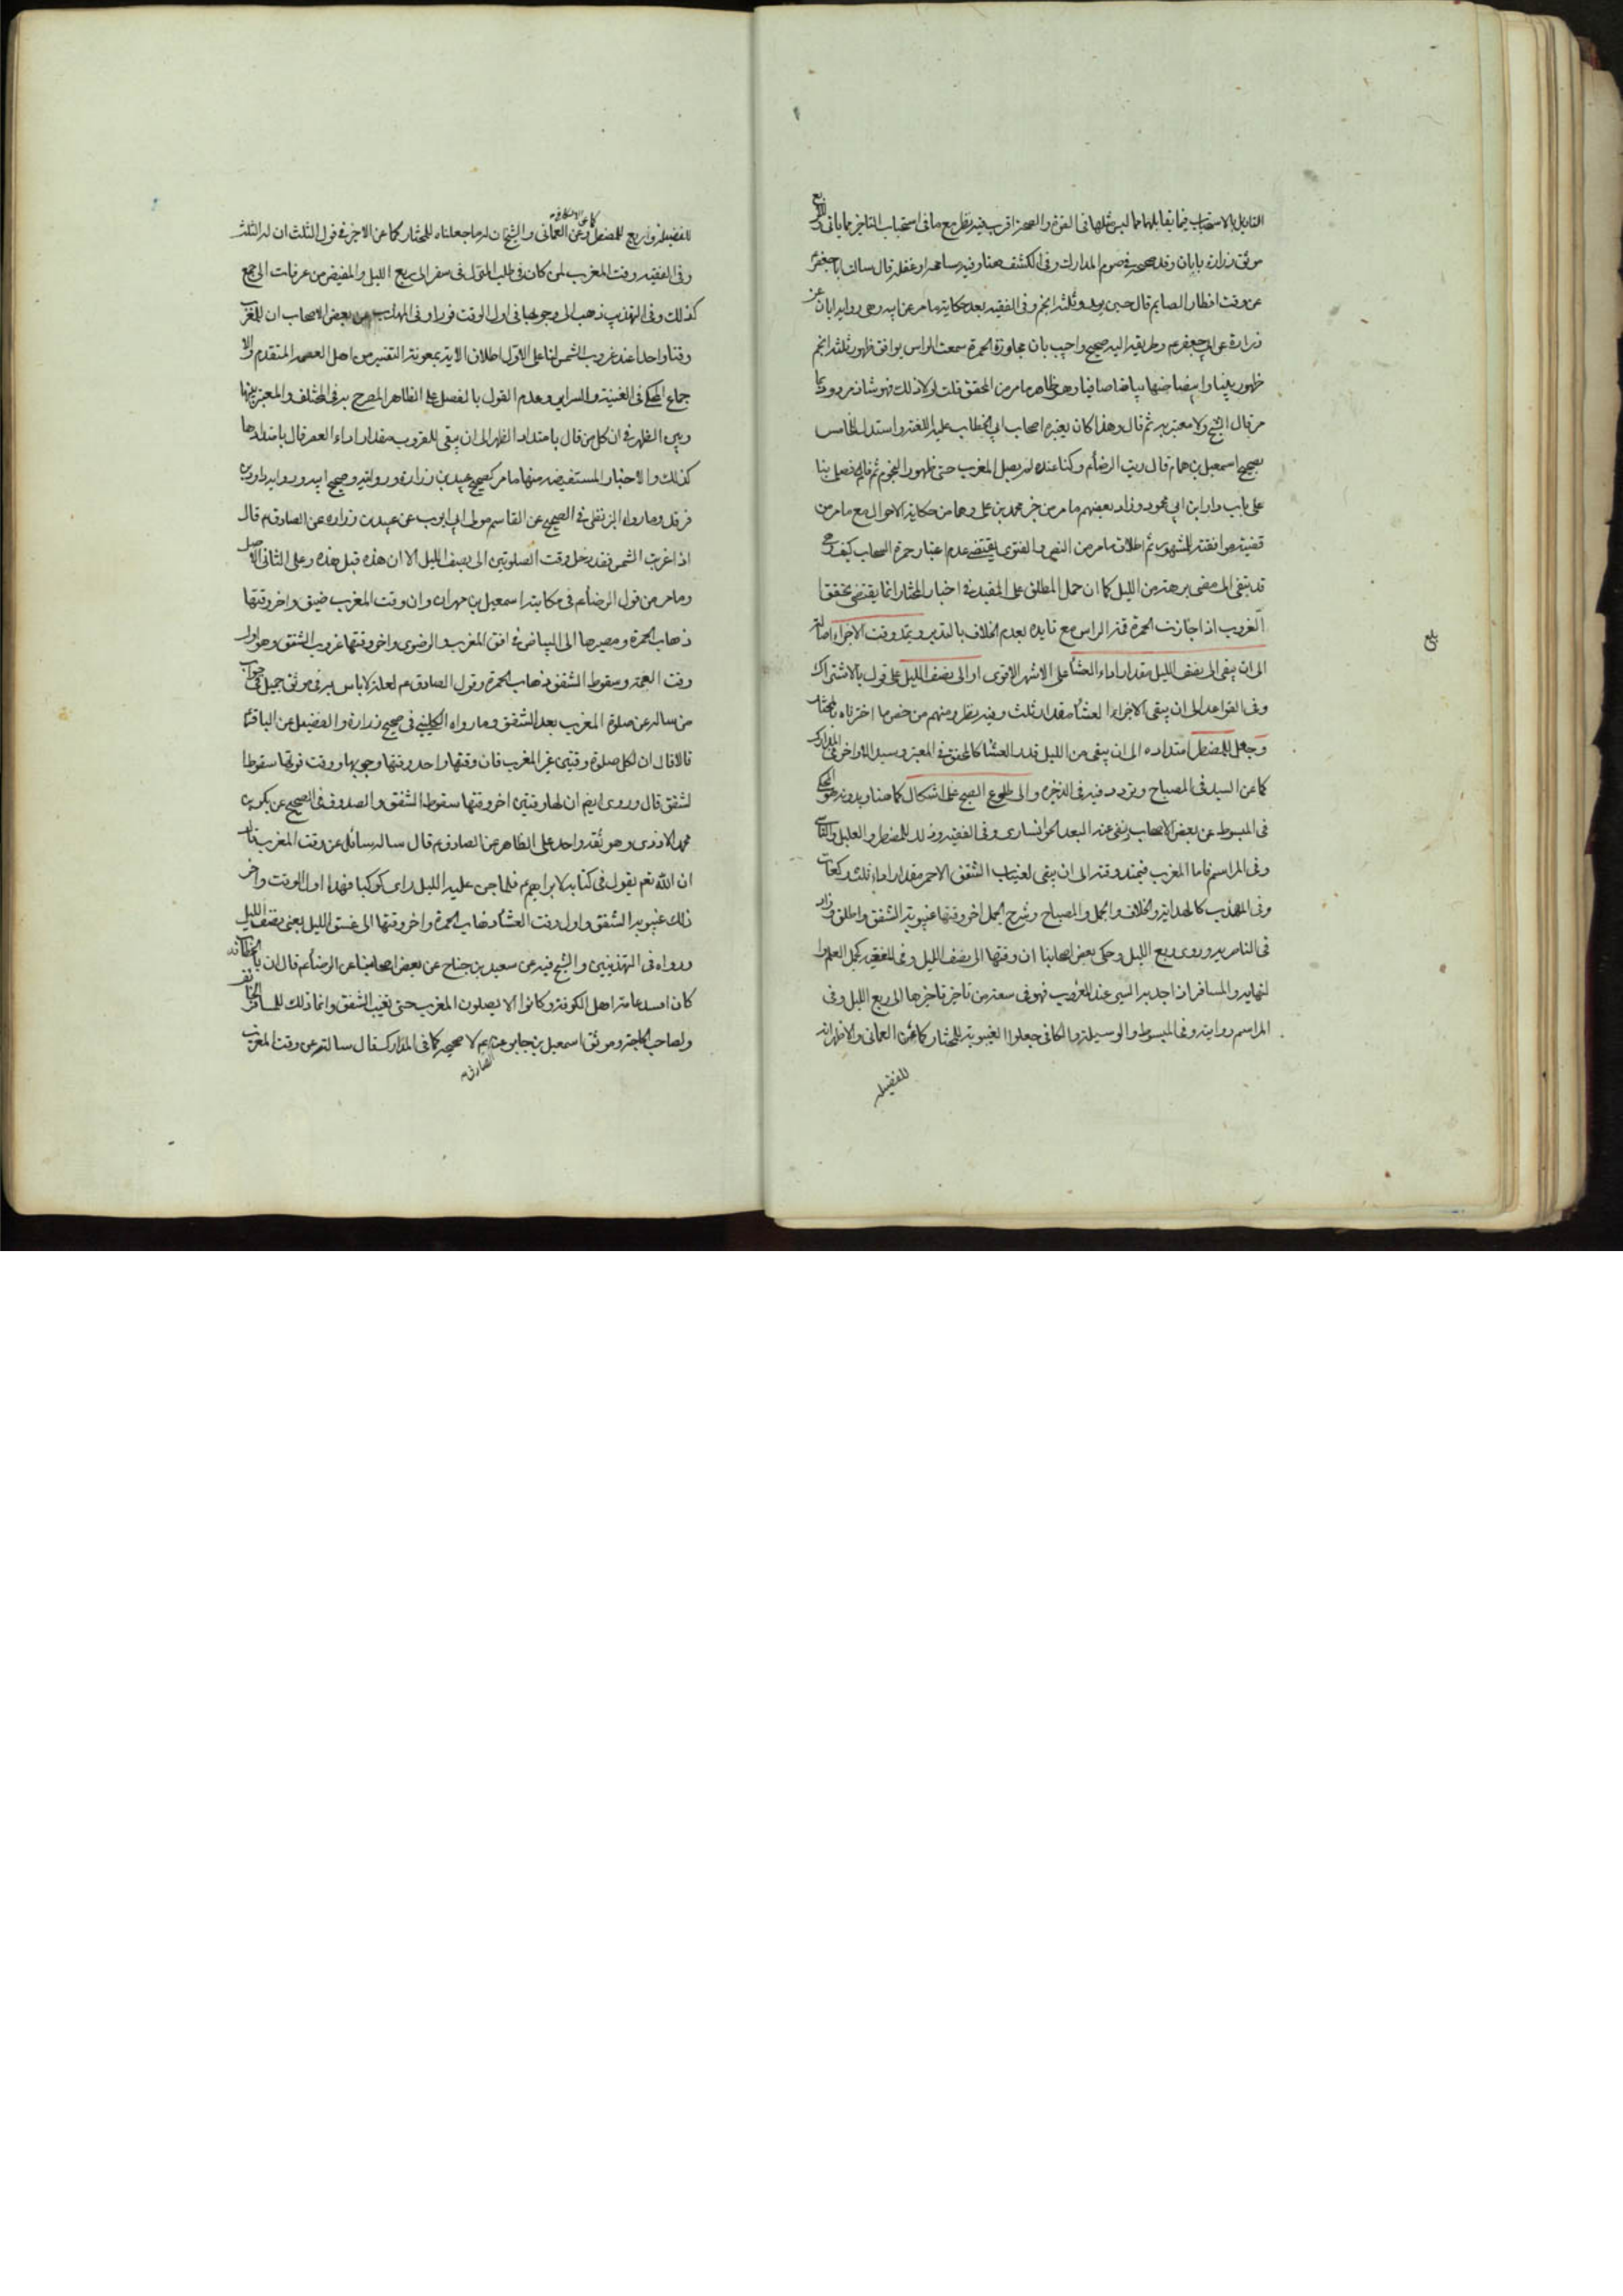 القايل بالاستحباب فيما يقابلها مما ليس مثلها فى القوة والصحة اقرب وفيه نظر مع ما فى استحباب التاخير مما ياتى والرابع
موثق زرارة بابان وقد صححه فى صوم المدارك وفى الكشف هنا وفيه مسامحة او غفلة قال سالت ابا جعفرع
عن وقت افطار الصايم قال حين يبدو ثلثة انجم وفى الفقيه بعد حكايتها مر عن ابيه وهى رواية ابان عن
زرارة عن ابى جعفرع وطريقه اليه صحيح واجيب بان مجاوزة الحمرة سمت الراس يوافق ظهور ثلثة انجم
ظهورا بينا وابيضاضها بياضا صافيا وهو ظاهر ما مر من المحقق قلت لولا ذلك فهو شاذ مردود كما
مر قال الشيخ ولا معتبر به ثم قال وهذا كان يعتبره اصحاب ابى الخطاب عليه اللعنة واستدل للخامس
بصحيح اسمعيل بن همام قال رايت الرضاع وكنا عنده لم يصل المغرب حتى ظهور النجوم ثم قام فصلى بنا
على باب دار ابن ابى محمود وزاد بعضهم ما مر من خبر محمد بن على وهما من حكاية الاحوال مع ما مر من
قضية موافقته للمشهور ثم اطلاق ما مر من النص والفتوى يقتضى عدم اعتبار حمرة السحاب كيف وهى
قد تبقى الى مضى برهة من الليل كما ان حمل المطلق على المقيد فى اخبار المختار انما يقتضى تحقق
الغروب اذا جازت الحمرة قمة الراس مع تايده بعدم الخلاف بالتدبر ويمتد وقت الاجزاء اصالة
الى ان يبقى الى نصف الليل مقدار اداء العشاء على الاشهر الاقوى او الى نصف الليل على قول بالاشتراك
وفى القواعد الى ان يبقى لاجزاء العشاء مقدار ثلث وفيه نظر ومنهم من خص ما اخترناه بالمختار
وجعل للمضطر امتداده الى ان يبقى من الليل قدر العشاء كالمحقق فى المعتبر وسيد الاواخر فى المدارك
كما عن السيد فى المصباح وتردد فيه فى الذخيرة والى طلوع الصبح على اشكال كما هنا وبدونه هو المحكى
فى المبسوط عن بعض الاصحاب ونفى عنه البعد الخوانسارى وفى الفقيه وذلك للمضطر والعليل والناسى
وفى المراسم فاما المغرب فيمتد وقته الى ان يبقى لغياب الشفق الاحمر مقدار اداء ثلث ركعات
وفى المهذب كالهداية والخلاف والجمل والمصباح وشرح الجمل اخر وقتها غيبوبة الشفق واطلق وزاد
فى الناصريه وروى ربع الليل وحكى بعض اصحابنا ان وقتها الى نصف الليل وفى المقنعة كعمل العلم وا
لنهاية والمسافر اذا جد به السير عند المغرب فهو فى سعة من تاخير تاخيرها الى ربع الليل وفى
المراسم رواية وفى المبسوط والوسيلة والكافى جعلوا الغيبوبة للمختار كما عن العمانى والاظهر انه
للفضيلة
بلغ
للفضيلة والربع للمضطر وعن العمانى والشيخان له ما جعلناه للمختار كما عن الاخير فى قول الثلث ان له الثلث
وفى الفقيه وقت المغرب لمن كان فى طلب المنزل فى سفر الى ربع الليل والمفيض من عرفات الى جمع
كذلك وفى التهذيب ذهب الى وجوبها فى اول الوقت فورا وفى المهذب عن بعض الاصحاب ان للمغرب
وقتا واحدا عند غروب الشمس لنا على الاول اطلاق الاية بمعونة التفسير من اهل العصمة المتقدم والا
جماع المحكى فى الغنية والسراير وعدم القول بالفصل على الظاهر المصرح به فى المختلف والمعتبر بينها
وبين الظهر فى ان كل من قال بامتداد الظهر الى ان يبقى للغروب مقدار اداء العصر قال بامتدادها
كذلك والاخبار المستفيضة منها ما مر كصحيح عبيد بن زرارة وروايته وصحيح ابيه ورواية داود بن
فرقد وما رواه البزنطى فى الصحيح عن القاسم مولى ابى ايوب عن عبيد بن زرارة عن الصادقع قال
اذا غربت الشمس فقد دخل وقت الصلوتين الى نصف الليل الا ان هذه قبل هذه وعلى الثانى الاصل
وما مر من قول الرضاع فى مكاتبة اسمعيل بن مهران وان وقت المغرب ضيق واخر وقتها
ذهاب الحمرة ومصيرها الى البياض فى افق المغرب والرضوى واخر وقتها غروب الشفق وهو اول
وقت العتمة وسقوط الشفق ذهاب الحمرة وقول الصادقع لعلة لا باس به فى موثق جميل فى جواب
من ساله عن صلوة المغرب بعد الشفق وما رواه الكلينى فى صحيح زرارة والفضيل عن الباقرع
قالا قال ان لكل صلوة وقتين غير المغرب فان وقتها واحد ووقتها وجوبها ووقت فوتها سقوط ا
لشفق قال وروى ايضا ان لها وقتين اخر وقتها سقوط الشفق والصدوق فى الصحيح عن بكر بن
محمد الازدى وهو ثقة واحد على الظاهر عن الصادقع قال ساله سائل عن وقت المغرب فقال
ان الله تعم يقول فى كتابه لابراهيمع فلما جن عليه الليل راى كوكبا فهذا اول الوقت واخر
ذلك غيبوبة الشفق واول وقت العشاء ذهاب الحمرة واخر وقتها الى غسق الليل يعنى نصف الليل
ورواه فى التهذيبين والشيخ فيه عن سعيد بن جناح عن بعض اصحابنا عن الرضاع قال ان ابا الخطاب قد
كان افسد عامة اهل الكوفة وكانوا لا يصلون المغرب حتى يغيب الشفق وانما ذلك للمسافر والخائف
ولصاحب الحاجة وموثق اسمعيل بن جابر عنهع لا صحيحه كما فى المدارك قال سالته عن وقت المغرب
الصادقع